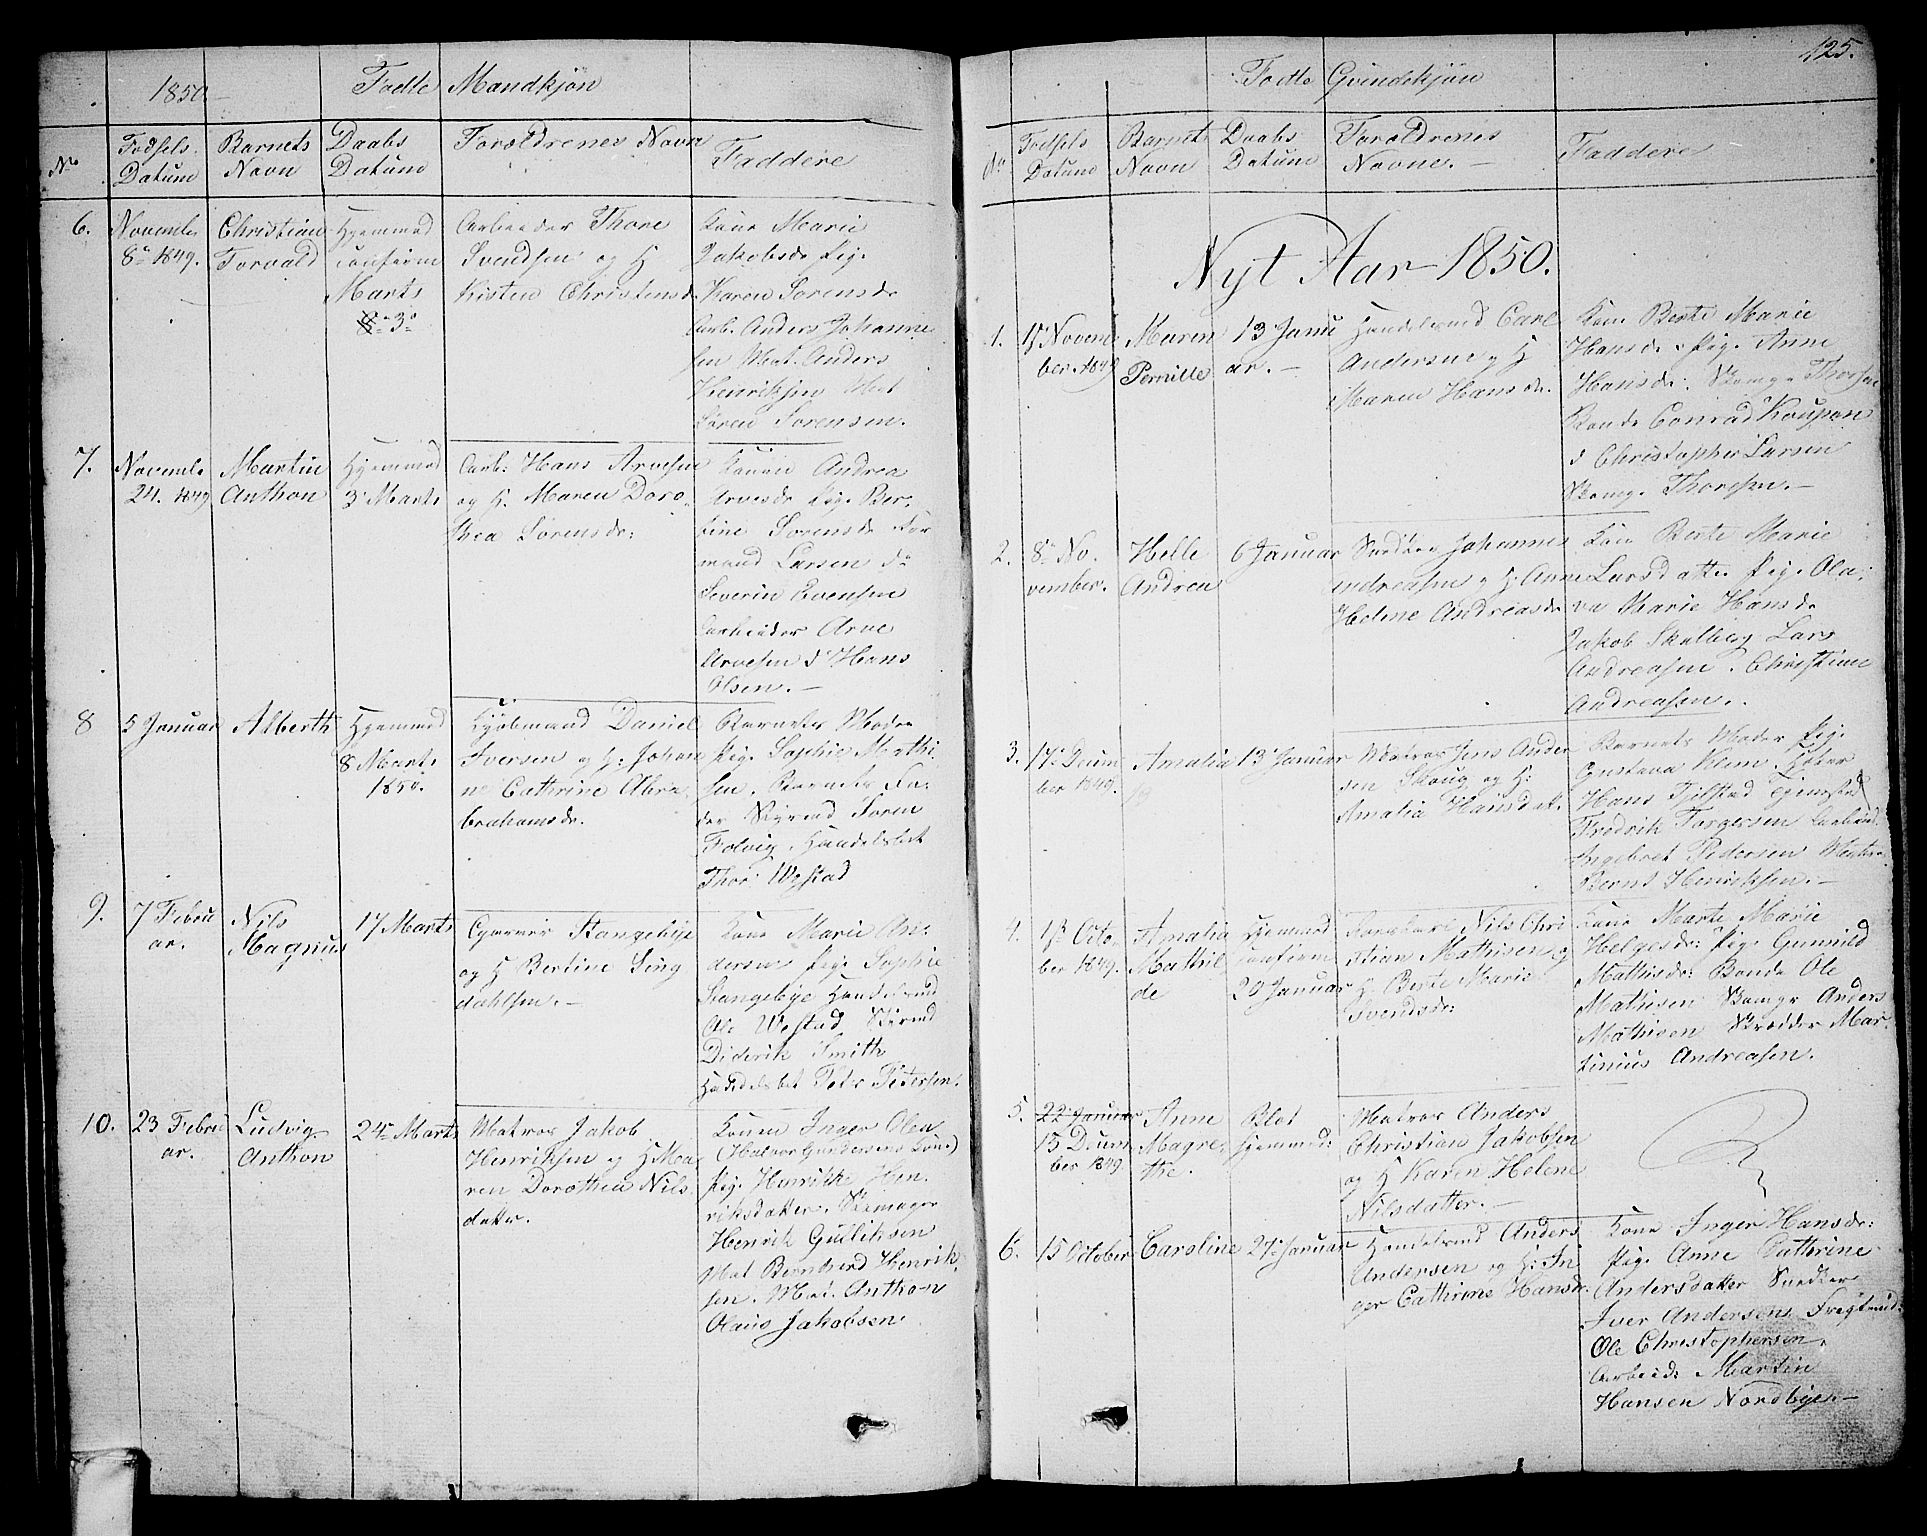 1850.
Fødte Mandkjøn
No
Fødsels Datum
Barnets Navn
Daabs Datum
Forældrenes Navn
Faddere
6.
November
8de 1849.
Christian
Torvald
Hjemmed
confirm
Marts
3de
Arbeider Thore
Svendsen og H
Kisten Christensd.
Kone Marie
Jakobsdr Pig.
Karen Sorensdr
Arb. Anders Johanne
sen Mat. Anders
Henriksen Mat
Søren Sorensen.
7.
Novembr
24. 1849
Martin
Anthon
Hjemmed
3 Marts
Arb: Hans Arvesen
og H. Maren Doro-
thea Sorensdr:
Konen Andrea
Arvesdr Pig. Ber-
tine Sorensdr
mand Larsen dо
Severin Evensen
Arbeider Arve
Arvesen d Hans
Olsen.
8
5 Januar
Alberth
Hjemmed
8 Marts
1850.
Kjøbmand Daniel
Iversen og H: Johan
ne Cathrine Abra
brahamsdr.
Barnets Moder
Pig. Sophie Mathi
sen. Barnets Fa-
der Styrmd Soren
Folvig. Handelsbet
Thor Wøstad
9.
7 Febru
ar.
Nils
Magnus
17 Marts
Garver Stangebye
og H Bertine Ling
dahlsen.
Kone Marie An-
dersen Pig. Sophie
Stangebye Handelsmd
Ole Westad Styrmd
Diderik Smith
Handelsbet Petr Petersen.
10.
23 Febru
ar.
Ludvig
Anthon
24 Marts
Matros Jakob
Henriksen og H Ma
ren Dorothea Nils
datter.
Konen Inger Olea
(Halvor Gundersens Kone)
Pig. Henrikke Hen
riksdatter. Skomager
Henrik Gulliksen
Mat Berntherd Henrik
sen. Mat. Anthon
Olaus Jakobsen
125.
Fødte Qvindekjøn
No
Fødsels Datum
Barnets Navn
Daabs Datum
Forældrenes Navne.
Faddere
Nyt Aar 1850.
1.
17 Novem
ber 1849
Maren
Pernille
13 Janu
ar.
Handelsmd Carl
Andersen og H
Maren Hansdr.
Kone Berte Marie
Hansdr. Pig. Anne
Hansdr. Skomgr Thorsen
Bonde Conrad Koupon
d Christopher Larsen
Skomgr Thorsen.
2.
8de No
vember.
Helle
Andrea
6 Januar
Snedker Johannes
Andreasen og H. Anne
Helene Andreasdr
Kone Berte Marie
Larsdatter Pig. Ola-
va Marie Hansdr
Jakob Skolberg Lars
Andreasen. Christian
Andreasen.
3.
17 Decem
ber 1849.
Amalia
13 Januar
Matros Jens Ander
sen Skoug og H:
Amalia Hansdat.
Barnets Moder Pig.
Gustava Klem
Hans Tjilstad Tjenestd
Fredrik Torgersen Arbeid.
Ingebret Pedersen
Bernt Henriksen.
4.
17 Octo-
ber 1849.
Amalia
Mathil
de
Hjemmed
confirm
20 Januar
Nils Chri
stian Mathisen og
H. Berte Marie
Svendsdr:
Kone Marte Marie
Helgesdr: Pig. Gunnild
Mathisdr: Bonde Ole
Mathisen Skomgr Anders
Mathisen Skrædder Mar
tinius Andreasen.
5.
22 Januar
15 Decem
ber 1849
Anne
Magre-
the.
Blot
Hjemmed:
Matros Anders
Christian Jakobsen
og H Karen Helene
Nilsdatter.
6.
15 October
Caroline
27 Januar
Handelsmd Anders
Andersen og H: In
ger Cathrine Hansdr.
Kone Inger Hansdr:
Pig. Anne Cathrine
Andersdatter Snedker
Iver Andersen Fregtmd:
Ole Christophersen.
Arbeid: Martin
Hansen Nordbyen